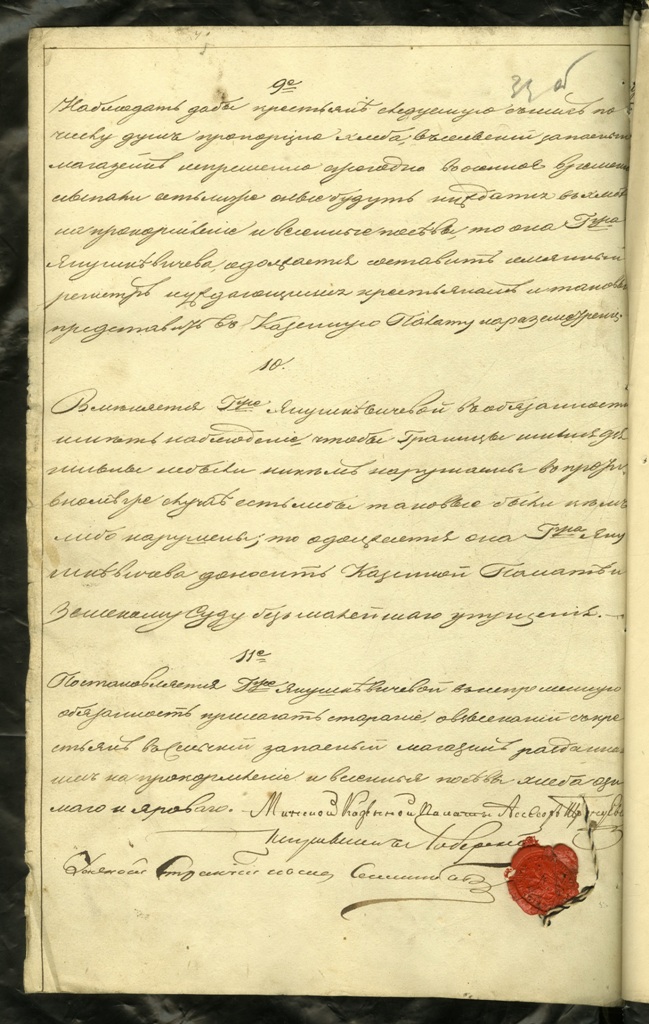 33 об
9е
Наблюдать дабы крестьяне следуемую съ нихъ по
числу душъ пропорцію хлеба, въ сельскій запасный
магазейнъ непременно ежегодно во осеннее время
естьли же оные будутъ нуждатся въ хлебе
на прокормленіе и весенные посевы, то она Гжа
Янушкевичева, одолжается составить имянный
регистръ нуждающимся крестьянамъ и таковый
представлять въ Казенную Палату на разсмотреніе
10.
Вменяется Гже Янушкевичевой въ обязанность
иметь наблюденіе чтобы Границы имения
небыли никемъ нарушаемы въ против
номъ же случае естьлибы таковые были кемъ
либо нарушены, то одолжается она Гжа Яну
шкевичева доносить Казенной Палате и
Земскому Суду безъ малейшаго упущенія. —
11е
Постановляется Гже Янушкевичевой въ непременную
обязанность прилагать стараніе, о взысканіи съ кре
стьянъ въ Сельскій запасный магазейнъ
на прокормленіе и весенныя посевы хлеба ози
маго и яроваго. — Минской Казенной Палаты Ассесоръ